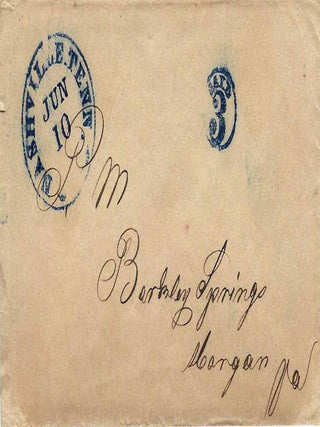 NASHVILLE, TENN.
JUN
10
PAID
3
P M
Berkley Springs
Morgan